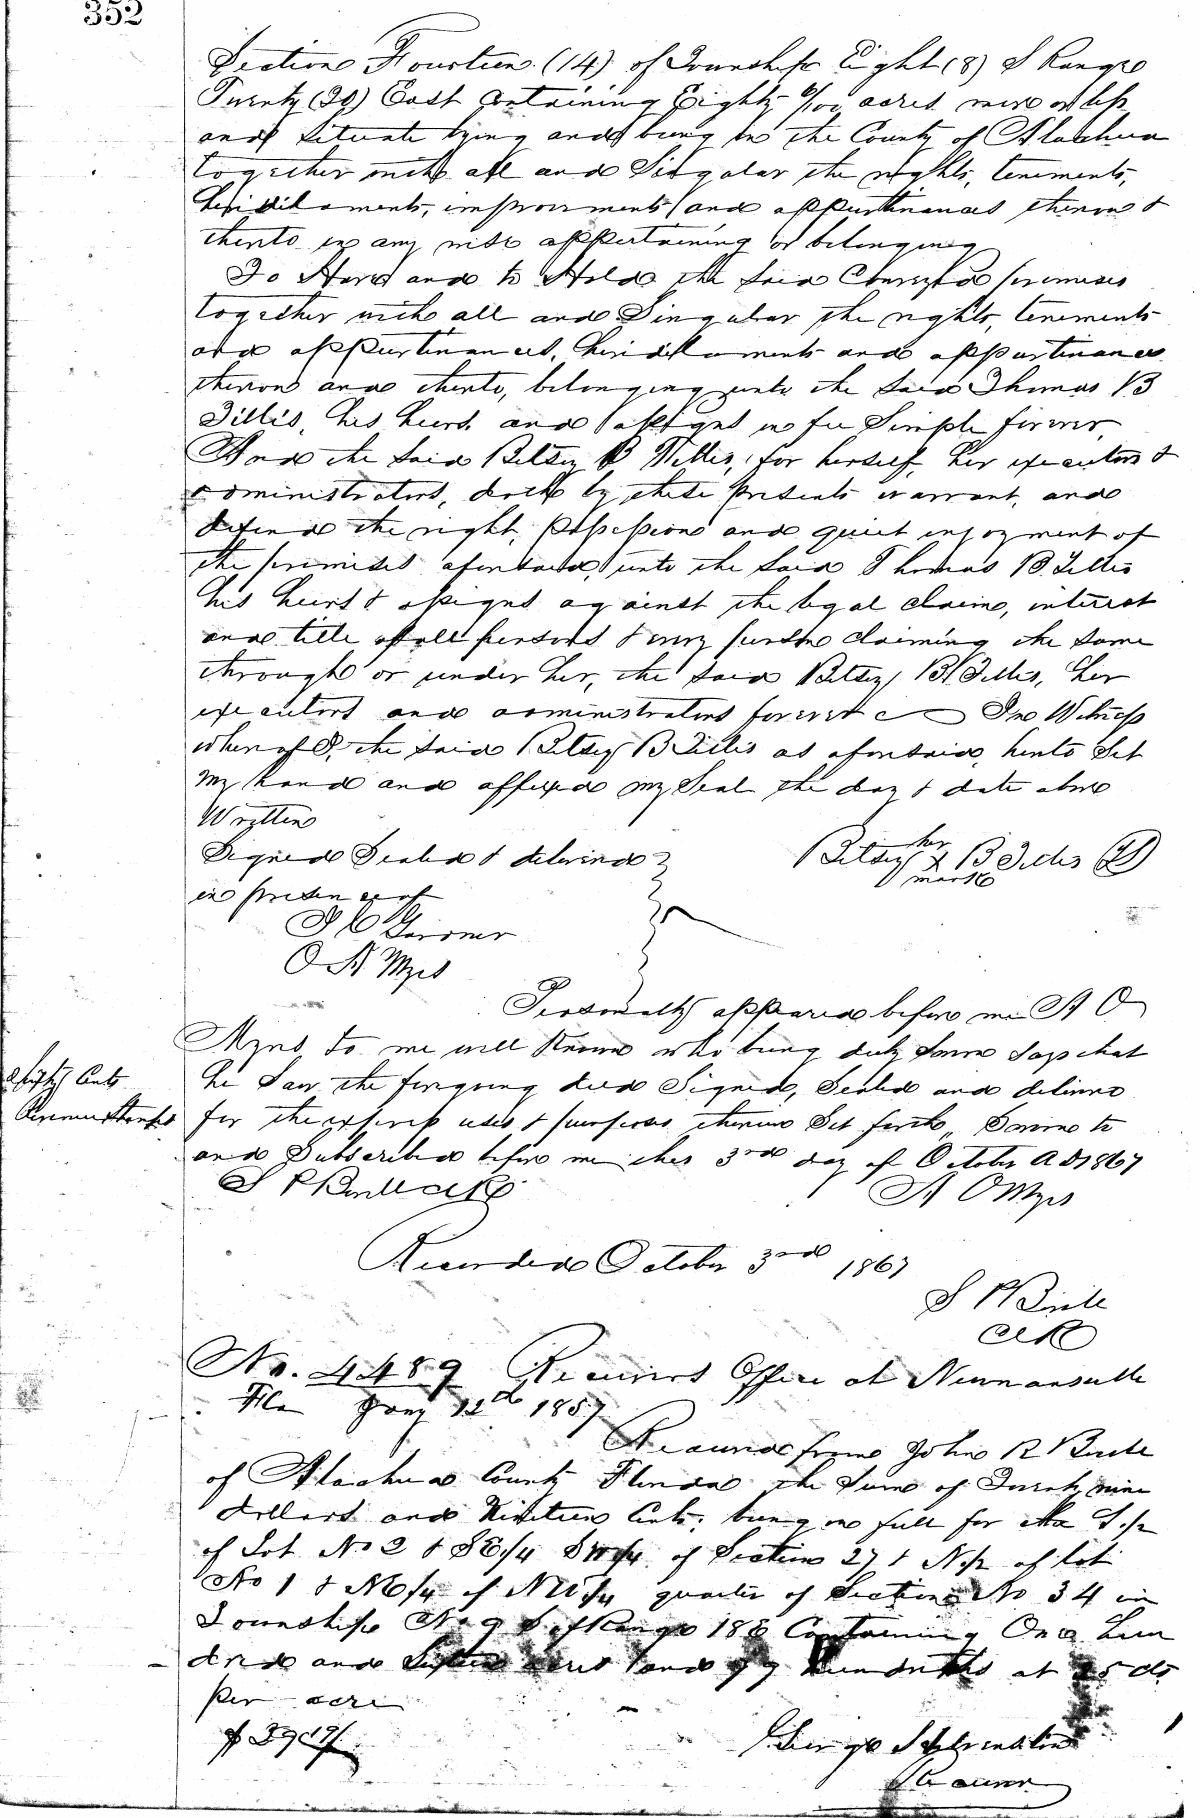 352
Section Fourteen (14) of Township Eight (8) S Range
Twenty (20) East Containing Eighty 0/100 acres more or less
and Situate lying and being in the County of Alachua
together with all and Singular the rights, tenements,
hereditaments, improvements and appurtinances thereon &
thereto in any wise appertaining or belonging
To Have and to Hold the Said Conveyed premises
together with all and Singular the rights, tenements
and appurtinances, hereditaments and appurtinances
thereon and thereto, belonging unto the Said Thomas B
Tillis, his heirs and assigns in fee Simple forever,
And the Said Betsey B Tillis, for herself, her executors &
administrators, doth by these presents warrant, and
defend the right, possession and quiet enjoyment of
the premises aforesaid, unto the Said Thomas B Tillis
his heirs & assigns against the legal claim, interest
and title of all persons & every person claiming the same
through or under her, the Said Betsey B Tillis, her
executors and administrators forever In Witness
whereof I, the Said Betsey B Tillis as aforesaid, hereto Set
my hand and affixed my Seal the day & date above
Written
Signed Sealed & delivered
in presence of
Betsey her X mark B Tillis LS
J C Gardner
O A Myers
Personally appeared before me A O
Myers to me well Known who being duly Sworn Says that
he Saw the foregoing deed Signed, Sealed and delivered
for the express uses & purposes therein Set forth, Sworn to
and Subscribed before me this 3rd day of October AD 1867
fifty Cents
Revenue Stamps
S P Burll Clk
A O Myers
Recorded October 3rd 1867
S P
Clk
No. 4489 Receivers Office at Newnansville
Fla Jany 12th 1857
Received from John R
of Alachua County Florida the Sum of Twenty nine
dollars and Nineteen Cents, being in full for the S 1/2
of Lot No 2 & SE 1/4 SW 1/4 of Section 27 & N 1/2 of lot
No 1 & NE 1/4 of NW 1/4 quarter of Section No 34 in
Township No 9 S of Range 18 E Containing One hun
dred and Sixteen acres and 77 hundredths at 25 cts
per acre
$ 29 19/
George
Receiver